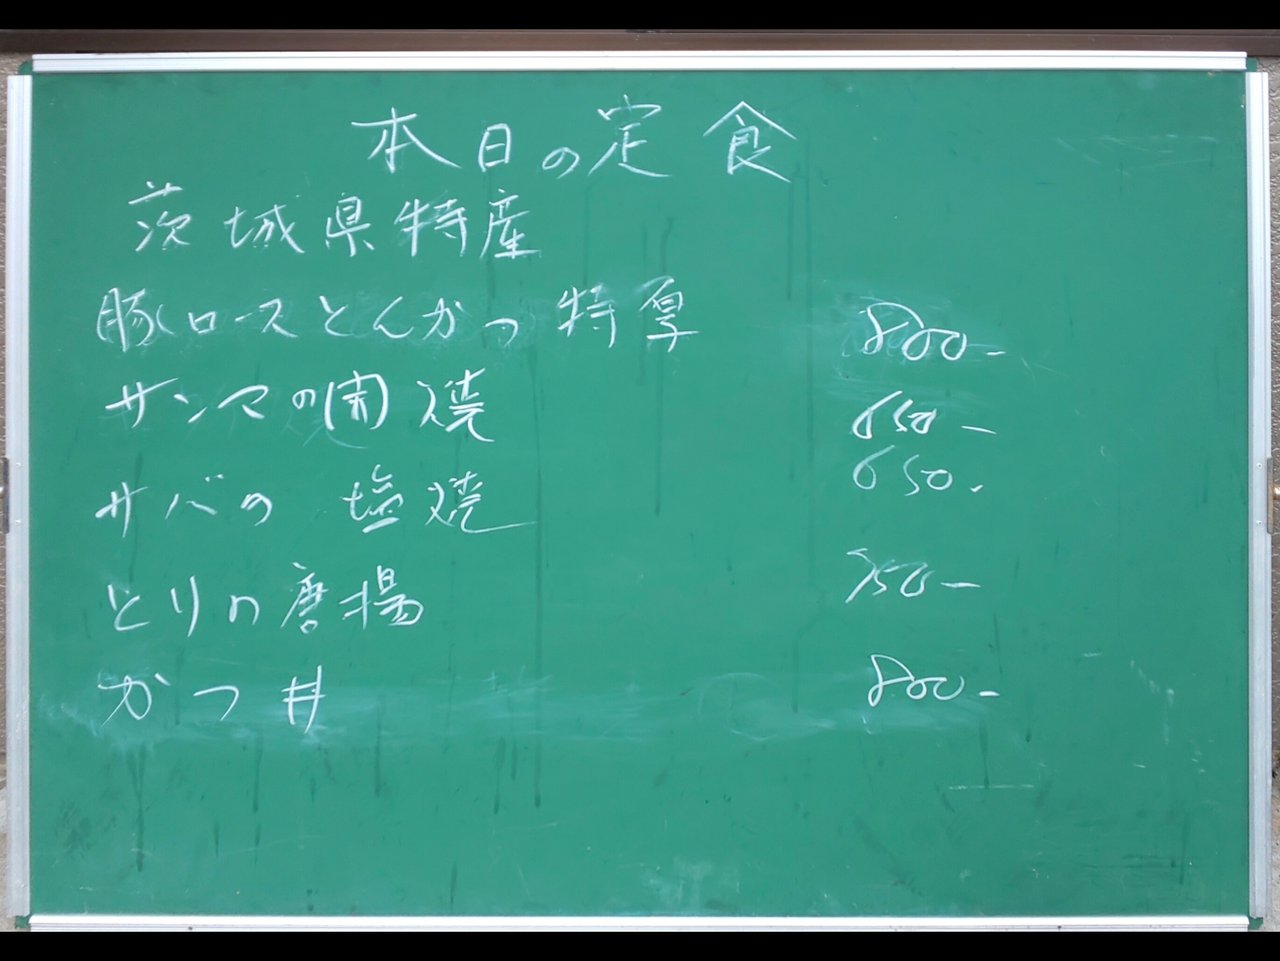 本日の定食
茨城県特産
豚ロースとんかつ特厚 800-
サンマの開焼 650-
サバの塩焼 650-
とりの唐揚 750-
かつ丼 800-